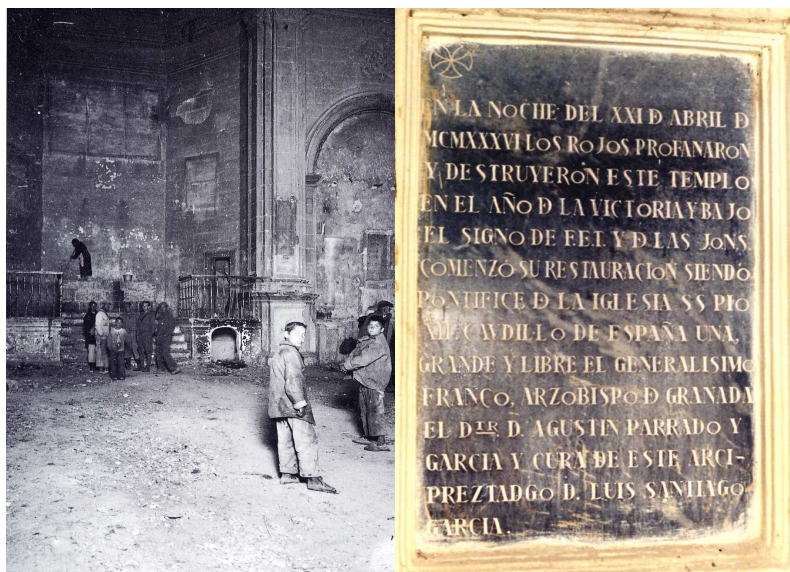 EN LA NOCHE DEL XXI Đ ABRIL Đ
MCMXXXVI LOS ROJOS PROFANARON
Y DESTRUYERON ESTE TEMPLO
EN EL AÑO Đ LA VICTORIA Y BAJO
EL SIGNO DE F.E.T. Y Đ LAS JONS.
COMENZO SU RESTAURACION SIENDO
PONTIFICE Đ LA IGLESIA SS PIO
XII. CAVDILLO DE ESPAÑA UNA,
GRANDE Y LIBRE EL GENERALISIMO
FRANCO, ARZOBISPO Đ GRANADA
EL DTR. D. AGUSTIN PARRADO Y
GARCIA Y CURA DE ESTE ARCI-
PREZTADGO D. LUIS SANTIAGO
GARCIA.